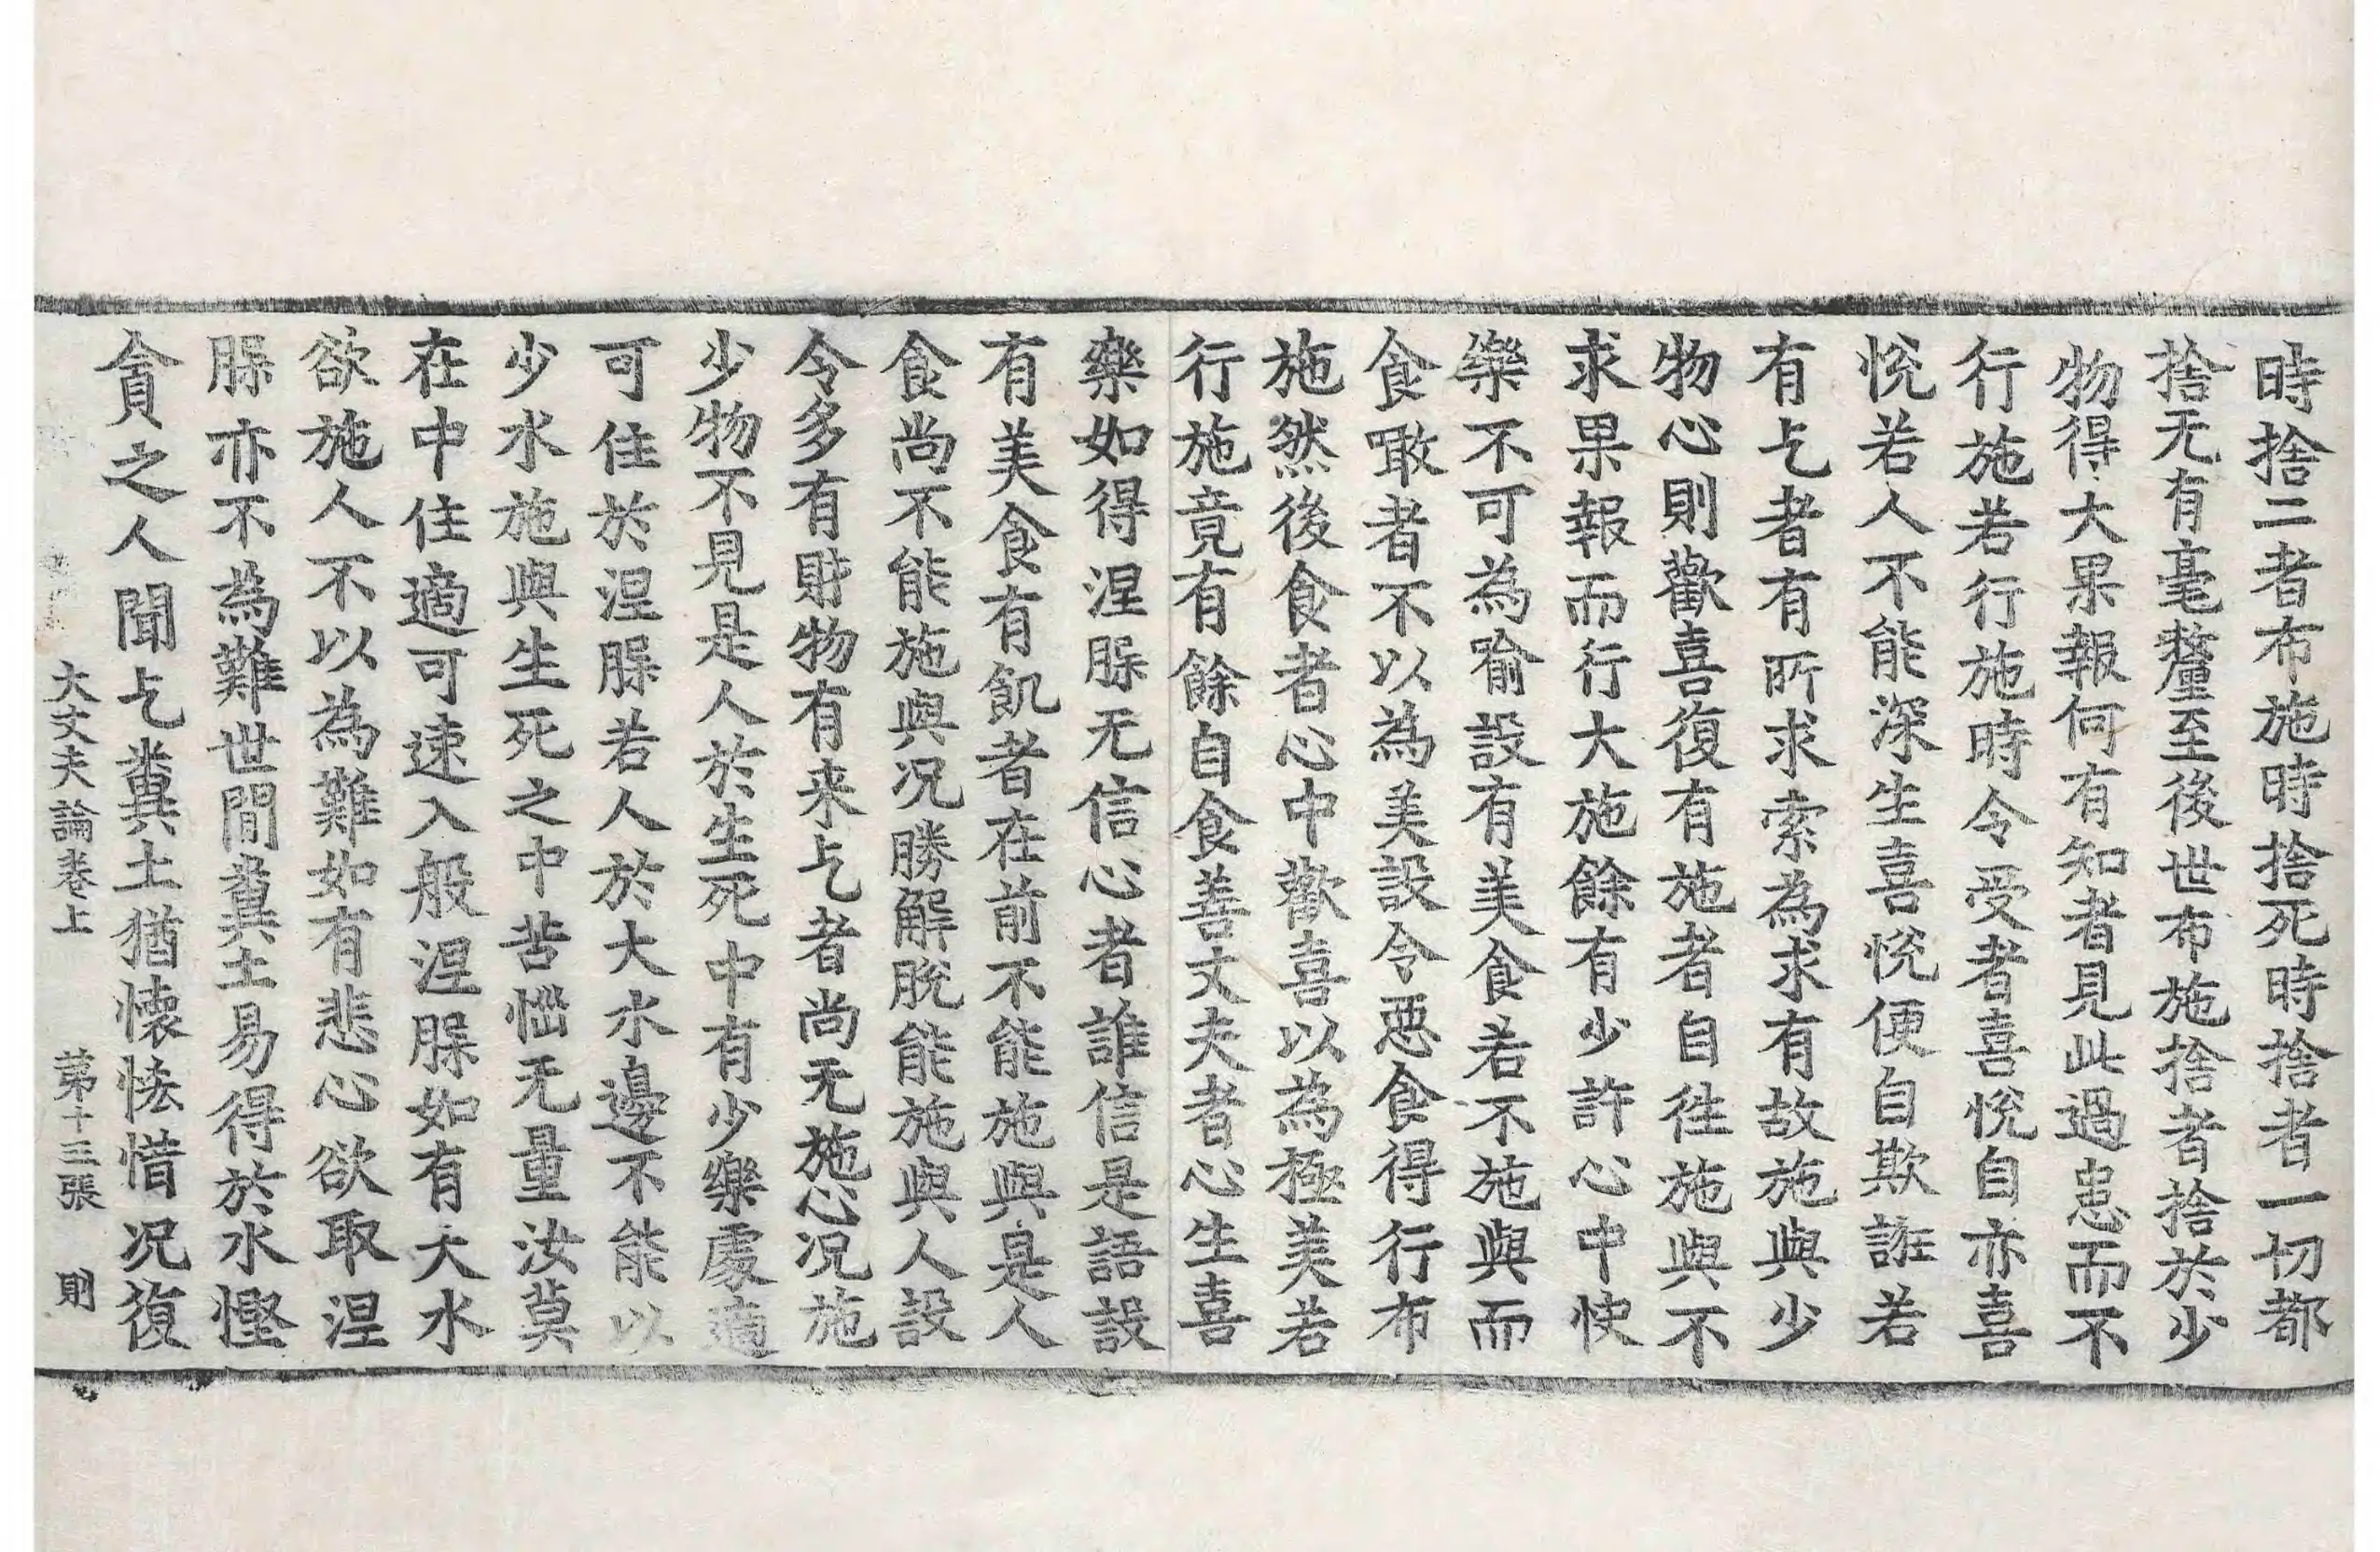 時捨二者布施時捨死時捨者一切都
捨无有毫氂至後世布施捨者捨於少
物得大果報何有知者見此過患而不
行施若行施時令受者喜悅自亦喜
悅若人不能深生喜悅便自欺誑若
有乞者有所求索為求有故施與少
物心則歡喜復有施者自往施與不
求果報而行大施餘有少許心中快
樂不可為喻設有美食若不施與而
食噉者不以為美設令惡食得行布
施然後食者心中歡喜以為極美若
行施竟有餘自食善丈夫者心生喜
樂如得涅槃无信心者誰信是語設
有美食有飢者在前不能施與是人
食尚不能施與況勝解脫能施與人設
令多有財物有来乞者尚无施心況施
少物不見是人於生死中有少樂處適
可住於涅槃若人於大水邊不能以
少水施與生死之中苦惱无量汝莫
在中住適可速入般涅槃如有大水
欲施人不以為難如有悲心欲取涅
槃亦不為難世間糞土易得於水慳
貪之人聞乞糞土猶懷恡惜況復
大丈夫論卷上　第十三張　則